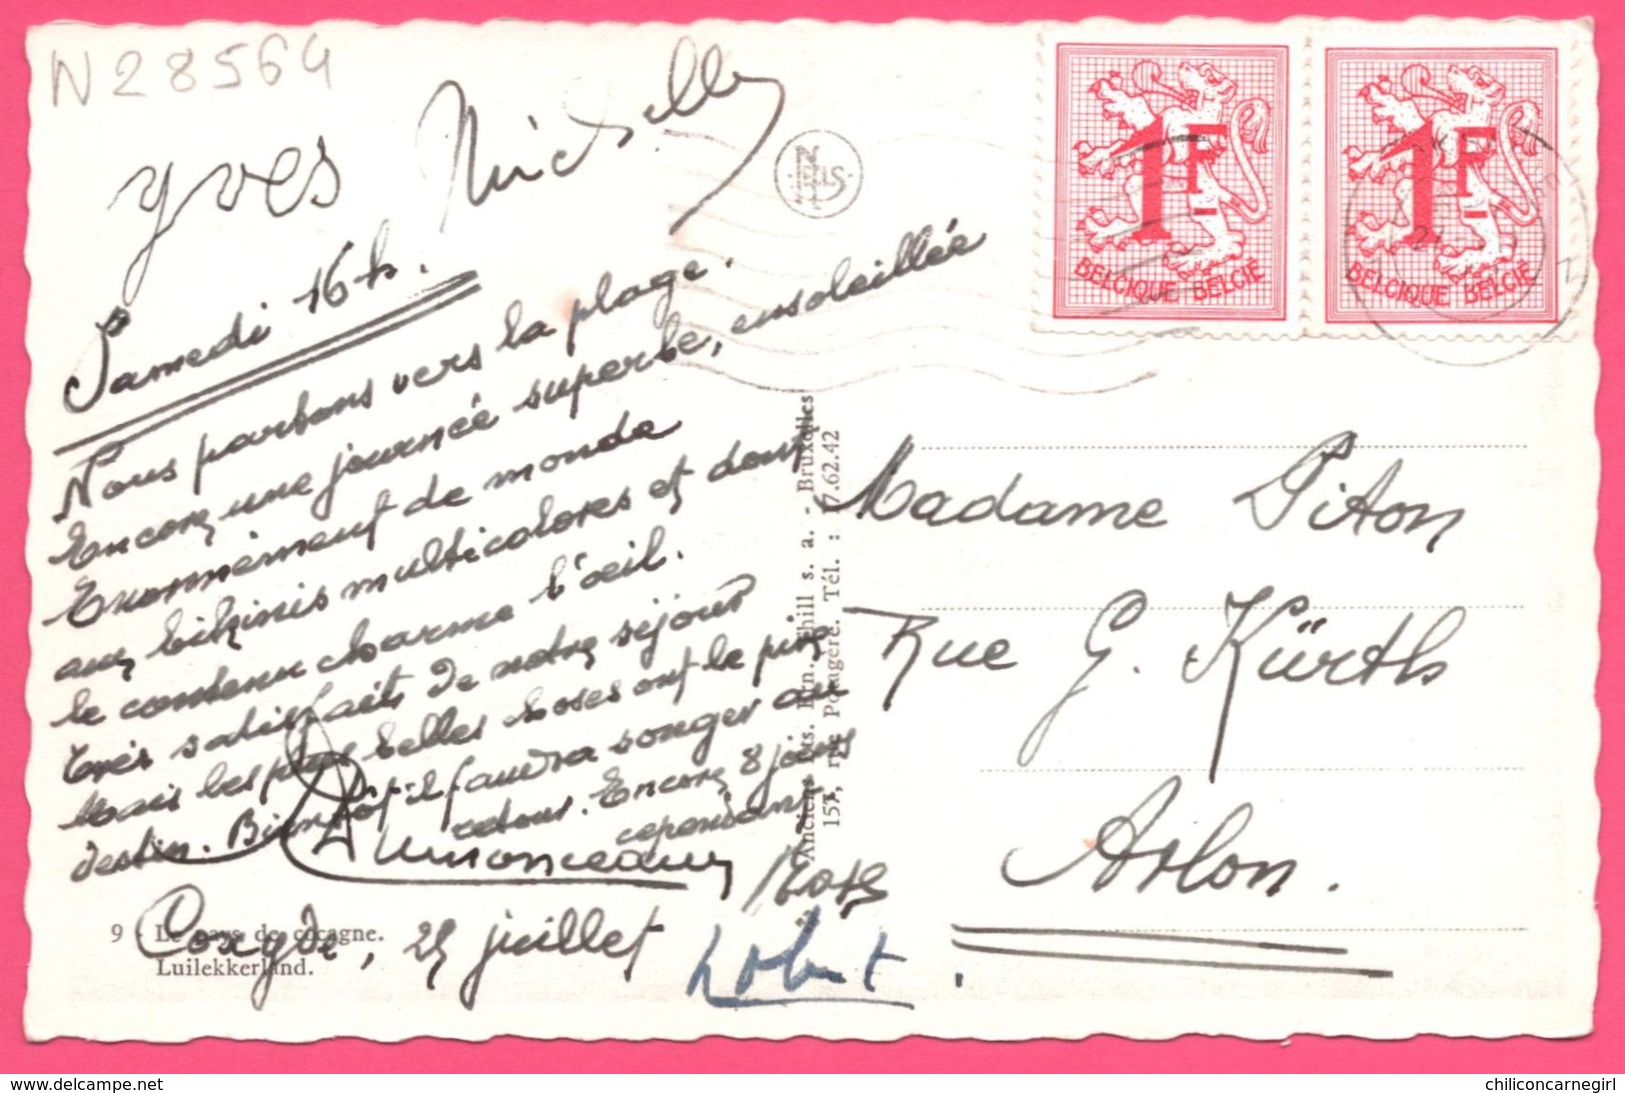 N28564
Yves
Samedi 16 h.
Nous partons vers la plage.
Encore une journée superbe, ensoleillée
Enormément de monde
aux bikinis multicolores et dont
le contenu charme l'œil.
Très satisfaits de notre séjour
Mais les plus belles choses ont le pire
destin. Bientôt il faudra songer au
retour. Encore 8 jours
cependant
Coxyde, 25 juillet
9 - Le pays de cocagne.
Luilekkerland.
Anciens Ets. Ern. Thill s. a. - Bruxelles
157, rue Potagère. Tél. : 17.62.42
1F
BELGIQUE BELGIË
1F
BELGIQUE BELGIË
Madame Piton
Rue G. Kürth
Arlon.
chiliconcarnegirl
delcampe.net